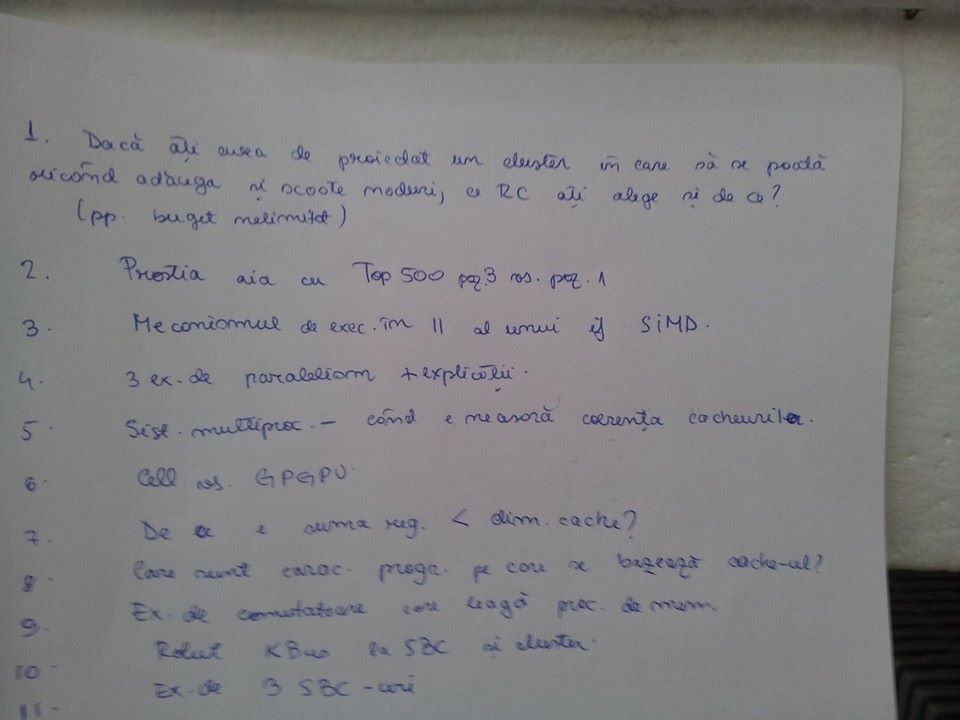 1. Dacă ați avea de proiectat un cluster în care să se poată
oricând adăuga și scoate noduri, ce RC ați alege și de ce?
(pp. buget nelimitat)
2. Prostia aia cu Top 500 poz.3 vs. poz. 1
3. Mecanismul de exec. în || al unui if SIMD.
4. 3 ex. de paralelism + explicații.
5. Sist. multiproc. - când e necesară coerența cacheurilor.
6. Cell vs. GPGPU
7. De ce e suma reg. < dim. cache?
8. Care sunt carac. progr. pe care se bazează cache-ul?
9. Ex. de comutatoare care leagă proc. de mem.
10. la SBC și cluster.
11. Ex. de 3 SBC-uri